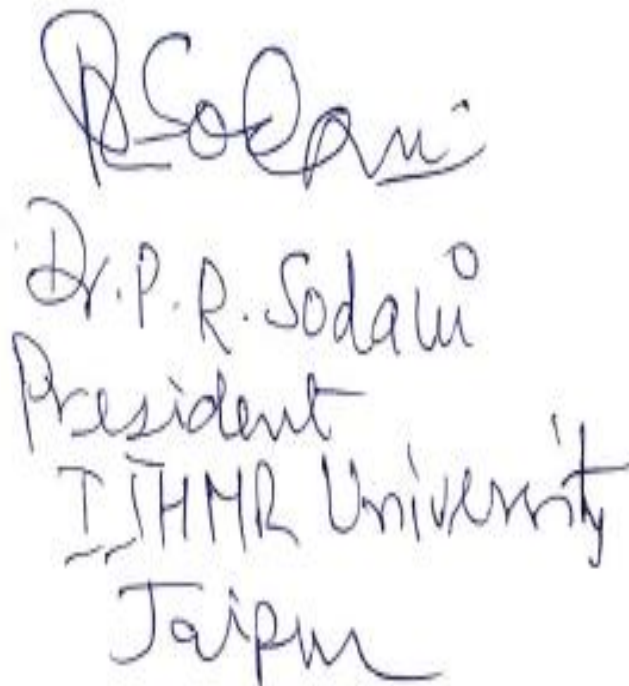 PRSodani
Dr. P. R. Sodani
President
IIHMR University
Jaipur